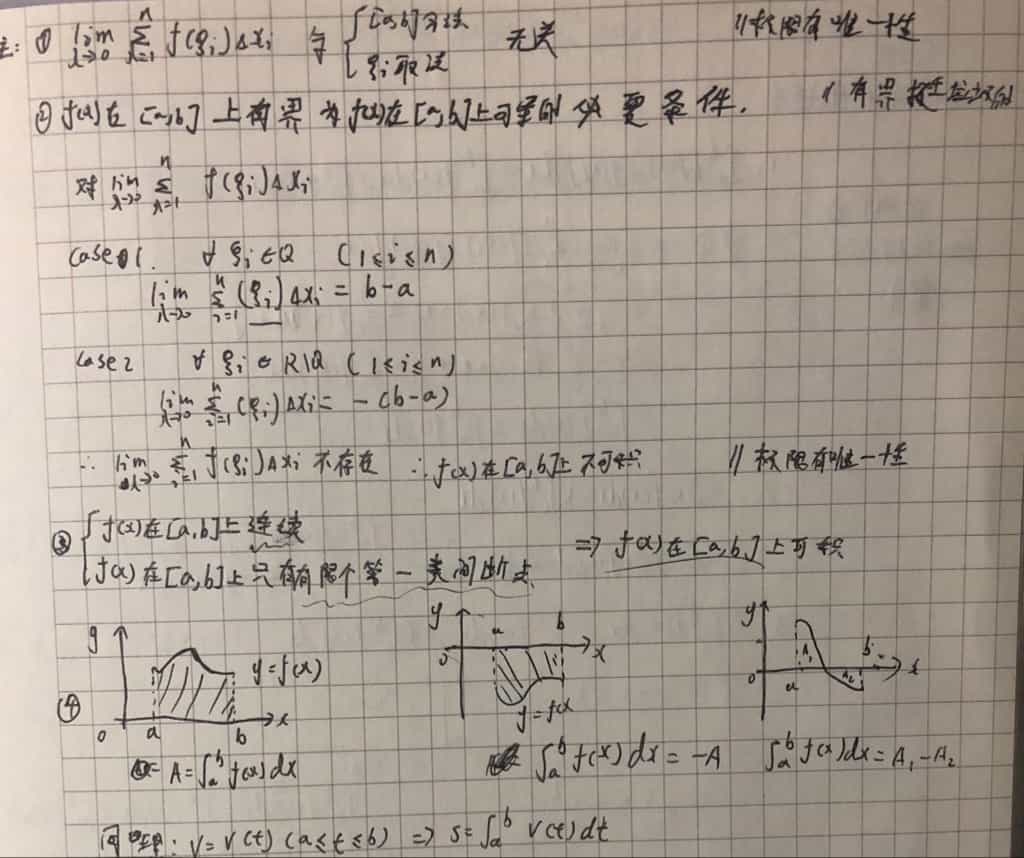 注: ① lim λ→0 Σ i=1 n f(ξi)Δxi 与 { [a,b]分法 ξi取法 无关 // 极限有唯一性
② f(x)在[a,b]上有界为f(x)在[a,b]上可积的必要条件. // 有界
对 lim λ→0 Σ i=1 n f(ξi)Δxi
Case 1. ∀ ξi∈Q (1≤i≤n)
lim λ→0 Σ i=1 n (ξi)Δxi = b-a
Case 2 ∀ ξi∈R\Q (1≤i≤n)
lim λ→0 Σ i=1 n (ξi)Δxi = -(b-a)
∴ lim λ→0 Σ i=1 n f(ξi)Δxi 不存在 ∴ f(x)在[a,b]上不可积 // 极限有唯一性
③ { f(x)在[a,b]上连续
f(x)在[a,b]上只有有限个第一类间断点 ⇒ f(x)在[a,b]上可积
④
y y=f(x) 0 a b x
y 0 a b x y=f(x)
y 0 a A1 A2 b x
A=∫a^b f(x)dx
∫a^b f(x)dx=-A
∫a^b f(x)dx=A1-A2
同理: V=V(t) (a≤t≤b) ⇒ S=∫a^b V(t)dt